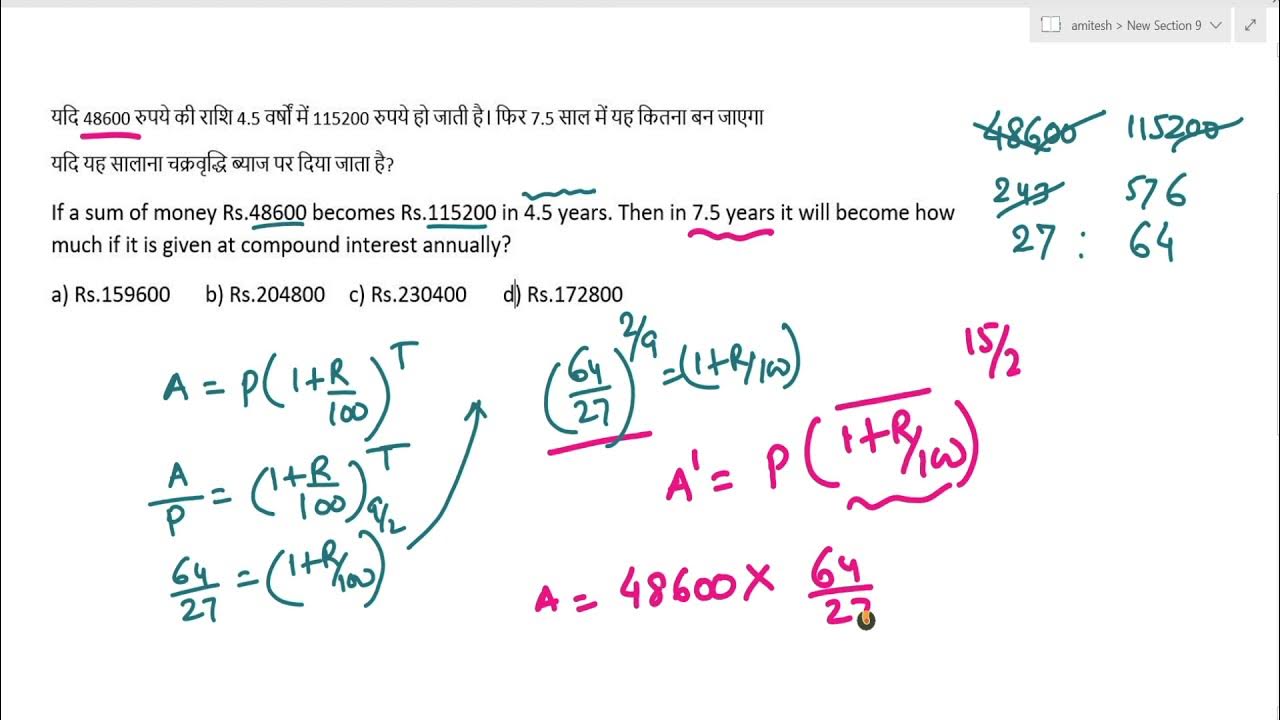 amitesh > New Section 9
यदि 48600 रुपये की राशि 4.5 वर्षों में 115200 रुपये हो जाती है। फिर 7.5 साल में यह कितना बन जाएगा
यदि यह सालाना चक्रवृद्धि ब्याज पर दिया जाता है?
If a sum of money Rs.48600 becomes Rs.115200 in 4.5 years. Then in 7.5 years it will become how
much if it is given at compound interest annually?
a) Rs.159600 b) Rs.204800 c) Rs.230400 d) Rs.172800
48600 115200
243 576
27 : 64
A = P(1+R/100)^T
A/P = (1+R/100)^T
64/27 = (1+R/100)^9/2
(64/27)^2/9 = (1+R/100)
A' = P(1+R/100)^15/2
A = 48600 × 64/27